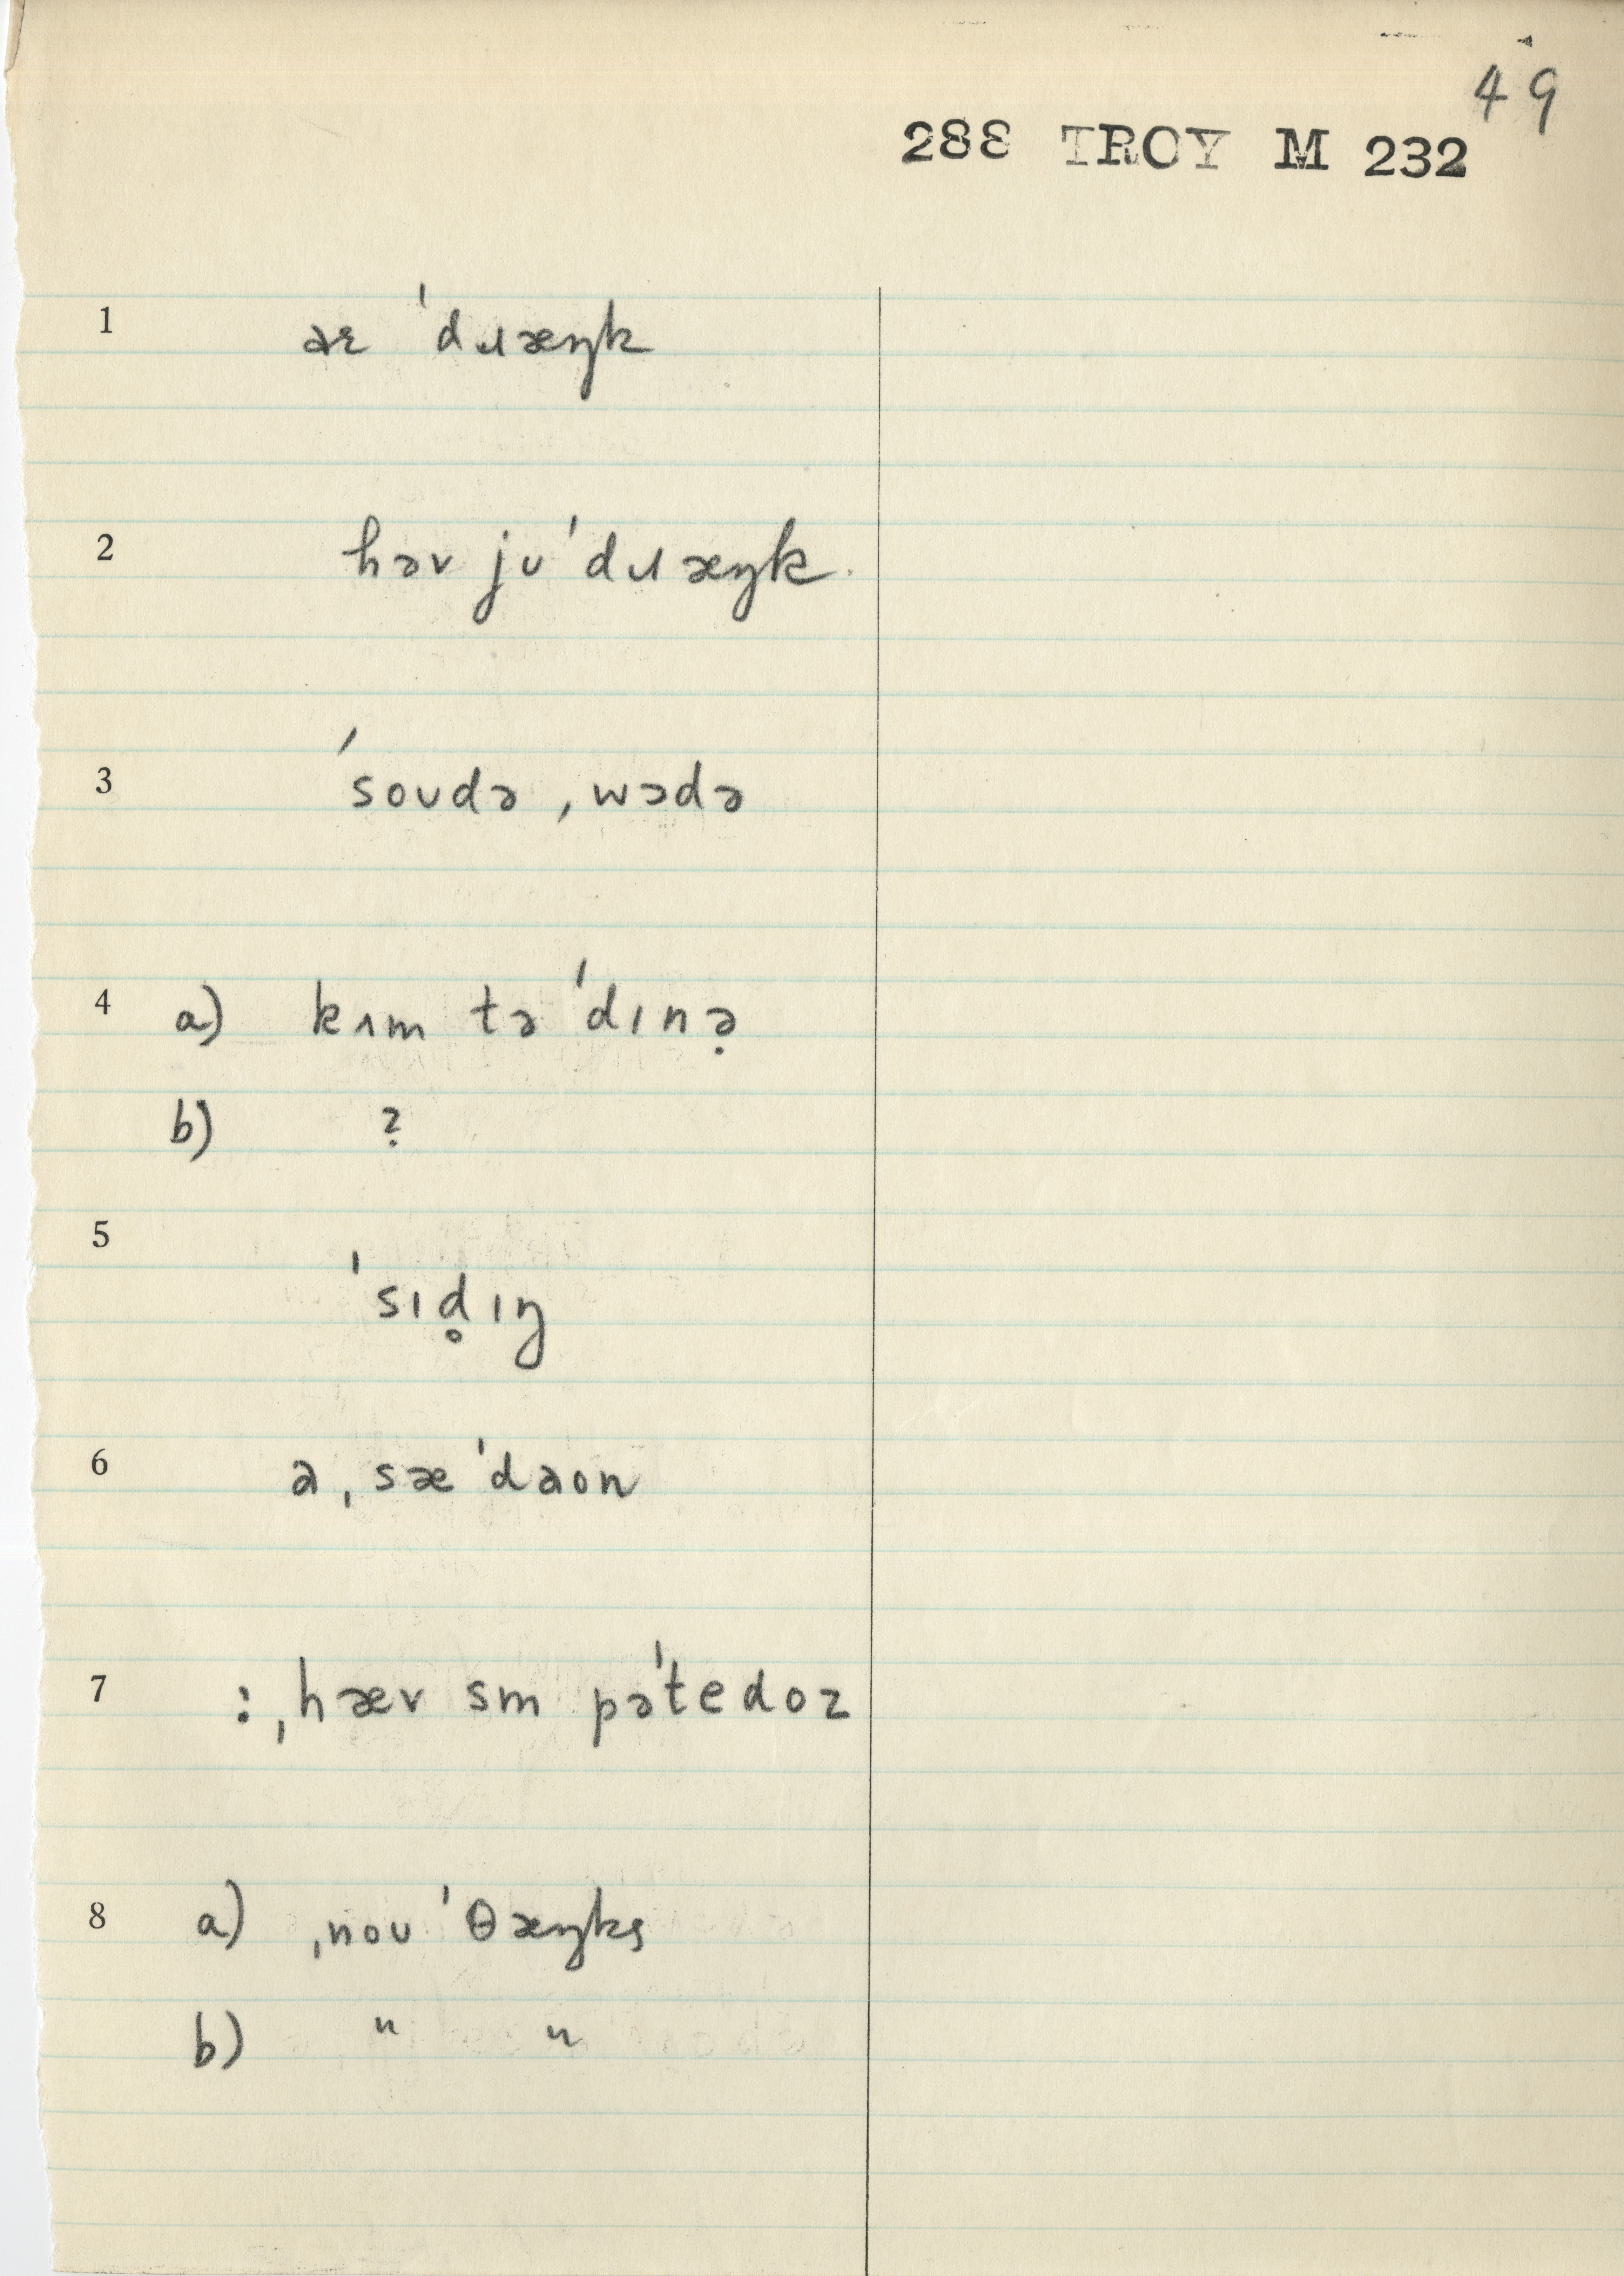 49
288 TROY M 232
1 aɪ ˈdɹæŋk
2 həv jʊ ˈdɹæŋk.
3 ˈsoʊdə ˌwɔdə
4 a) kʌm tə ˈdɪnə̣
b) ?
5 ˈsɪd̥ɪŋ
6 a ˌsæˈdaon
7 : ˌhæv sm pəˈtedoz
8 a) ˌnoʊ ˈθæŋks
b) " "